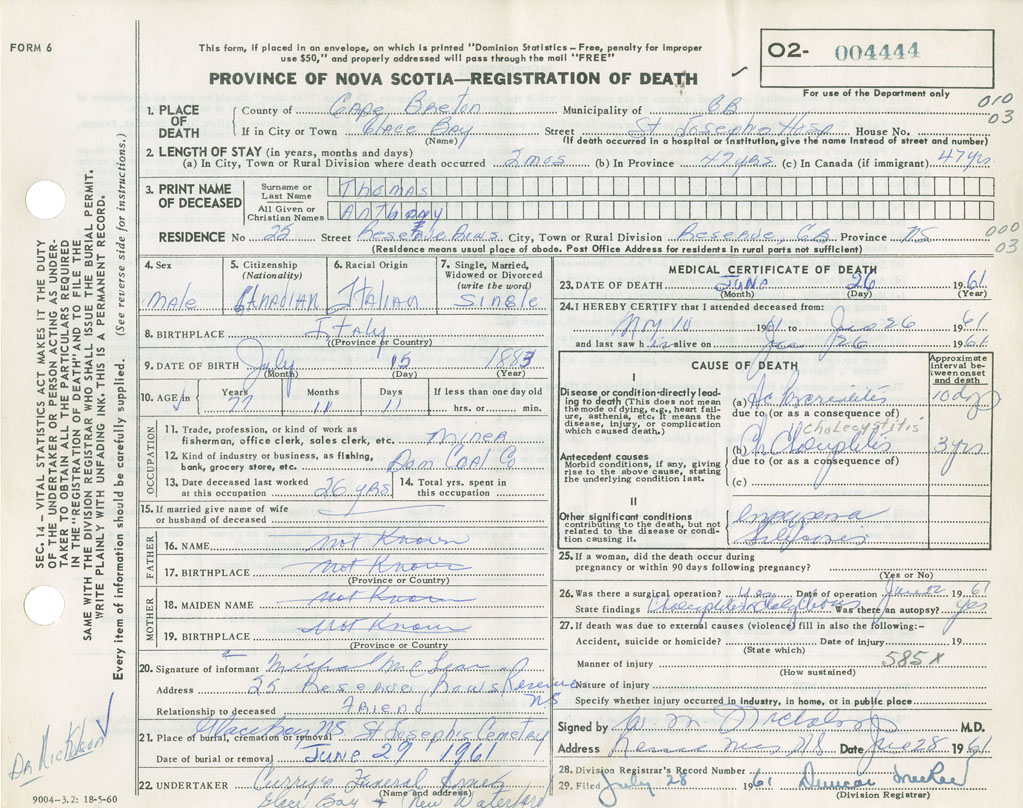 FORM 6
This form, if placed in an envelope, on which is printed "Dominion Statistics – Free, penalty for improper
use $50," and properly addressed will pass through the mail "FREE"
PROVINCE OF NOVA SCOTIA—REGISTRATION OF DEATH
O2- 004444
For use of the Department only
010
03
1. PLACE OF DEATH
County of Cape Breton Municipality of CB
If in City or Town Glace Bay Street St Josephs Hosp House No.
(Name) (If death occurred in a hospital or institution, give the name instead of street and number)
2. LENGTH OF STAY (in years, months and days)
(a) In City, Town or Rural Division where death occurred 2 mos (b) In Province 47 yrs. (c) In Canada (if immigrant) 47 yrs
3. PRINT NAME OF DECEASED
Surname or Last Name Thomas
All Given or Christian Names Anthony
RESIDENCE No 25 Street Reserve Rows City, Town or Rural Division Reserve, CB Province NS
(Residence means usual place of abode. Post Office Address for residents in rural parts not sufficient)
000
03
4. Sex
male
5. Citizenship (Nationality)
Canadian
6. Racial Origin
Italian
7. Single, Married, Widowed or Divorced (write the word)
Single
8. BIRTHPLACE Italy
(Province or Country)
9. DATE OF BIRTH July 15 1883
(Month) (Day) (Year)
10. AGE in
Years 77
Months 11
Days 11
If less than one day old
hrs. or min.
OCCUPATION
11. Trade, profession, or kind of work as
fisherman, office clerk, sales clerk, etc. miner
12. Kind of industry or business, as fishing,
bank, grocery store, etc. Dom Coal Co
13. Date deceased last worked
at this occupation 26 yrs
14. Total yrs. spent in
this occupation
15. If married give name of wife
or husband of deceased
FATHER
16. NAME not Known
17. BIRTHPLACE not Known
(Province or Country)
MOTHER
18. MAIDEN NAME not Known
19. BIRTHPLACE Not Known
(Province or Country)
20. Signature of informant Michael McLean
Address 25 Reserve Rows Reserve NS
Relationship to deceased Friend
21. Place of burial, cremation or removal Glace Bay NS St Josephs Cemetery
Date of burial or removal June 29 1961
22. UNDERTAKER Curry's Funeral Homes
(Name and address)
Glace Bay + New Waterford
MEDICAL CERTIFICATE OF DEATH
23. DATE OF DEATH June 26 1961
(Month) (Day) (Year)
24. I HEREBY CERTIFY that I attended deceased from:
May 10 1961 to June 26 1961
and last saw him alive on June 26 1961
CAUSE OF DEATH
Approximate interval between onset and death
I
Disease or condition directly leading to death (This does not mean the mode of dying, e.g., heart failure, asthenia, etc. It means the disease, injury, or complication which caused death.)
(a) Ac 10 dys
due to (or as a consequence of)
Cholecystitis
Antecedent causes
Morbid conditions, if any, giving rise to the above cause, stating the underlying condition last.
(b) Ch 3 yrs
due to (or as a consequence of)
(c)
II
Other significant conditions
contributing to the death, but not related to the disease or condition causing it.
Emphysema
Silicosis
25. If a woman, did the death occur during
pregnancy or within 90 days following pregnancy?
(Yes or No)
26. Was there a surgical operation? yes Date of operation June 12 1961
State findings Was there an autopsy? yes
27. If death was due to external causes (violence) fill in also the following:–
Accident, suicide or homicide? Date of injury 19
(State which)
Manner of injury 585X
(How sustained)
Nature of injury
Specify whether injury occurred in industry, in home, or in public place
Signed by M.D.
Address Reserve Mines NS Date June 28 1961
28. Division Registrar's Record Number
29. Filed July 28 1961 Duncan
(Division Registrar)
SEC. 14 – VITAL STATISTICS ACT MAKES IT THE DUTY
OF THE UNDERTAKER OR PERSON ACTING AS UNDER-
TAKER TO OBTAIN ALL THE PARTICULARS REQUIRED
IN THE "REGISTRATION OF DEATH" AND TO FILE THE
SAME WITH THE DIVISION REGISTRAR WHO SHALL ISSUE THE BURIAL PERMIT.
WRITE PLAINLY WITH UNFADING INK. THIS IS A PERMANENT RECORD.
Every item of information should be carefully supplied. (See reverse side for instructions.)
9004-3.2: 18-5-60